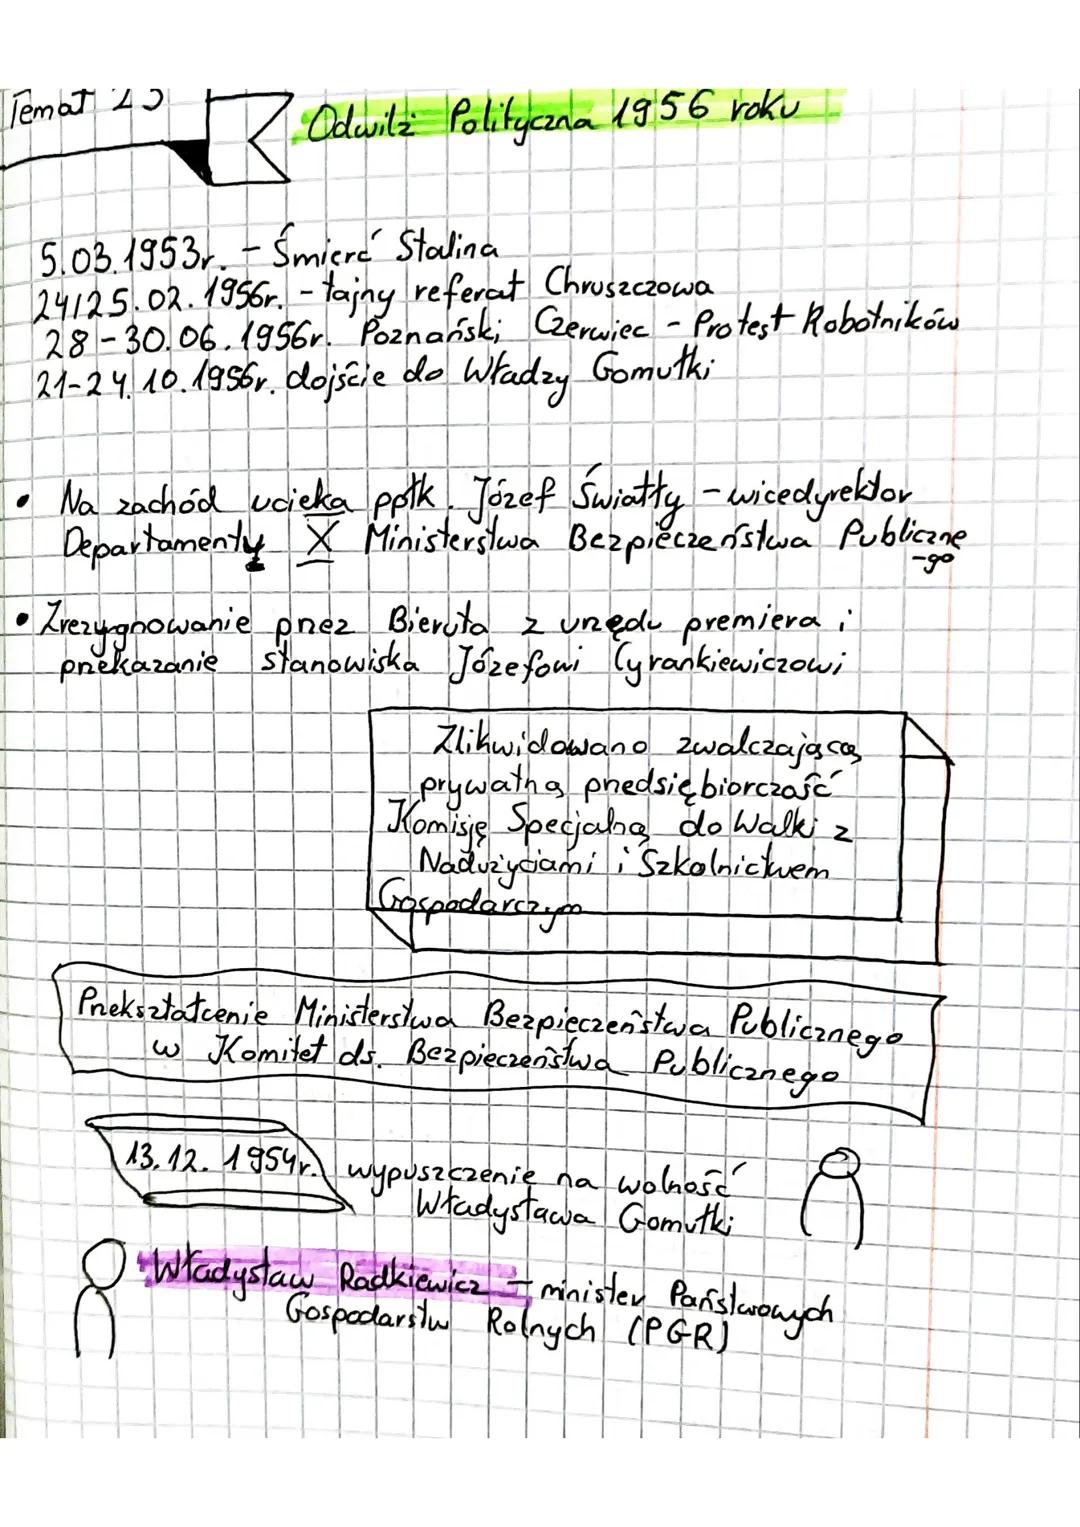 Temat 25
Odwilż Polityczna 1956 roku
5.03.1953r. - Śmierć Stalina
24/25.02.1956r. - tajny referat Chruszczowa
28-30.06.1956r. Poznański Czerwiec - Protest Robotników
21-24.10.1956r. dojście do Władzy Gomułki
• Na zachód ucieka ppłk. Józef Światły - wicedyrektor
Departamenty X Ministerstwa Bezpieczeństwa Publiczne
-go
• Zrezygnowanie przez Bieruta z urzędu premiera i
przekazanie stanowiska Józefowi Cyrankiewiczowi
Zlikwidowano zwalczającą
prywatną przedsiębiorczość
Komisję Specjalną do Walki z
Nadużyciami i Szkolnictwem
Gospodarczym
Przekształcenie Ministerstwa Bezpieczeństwa Publicznego
w Komitet ds. Bezpieczeństwa Publicznego
13.12.1954r. wypuszczenie na wolność
Władysława Gomułki
Władysław Radkiewicz - minister Państwowych
Gospodarstw Rolnych (PGR)